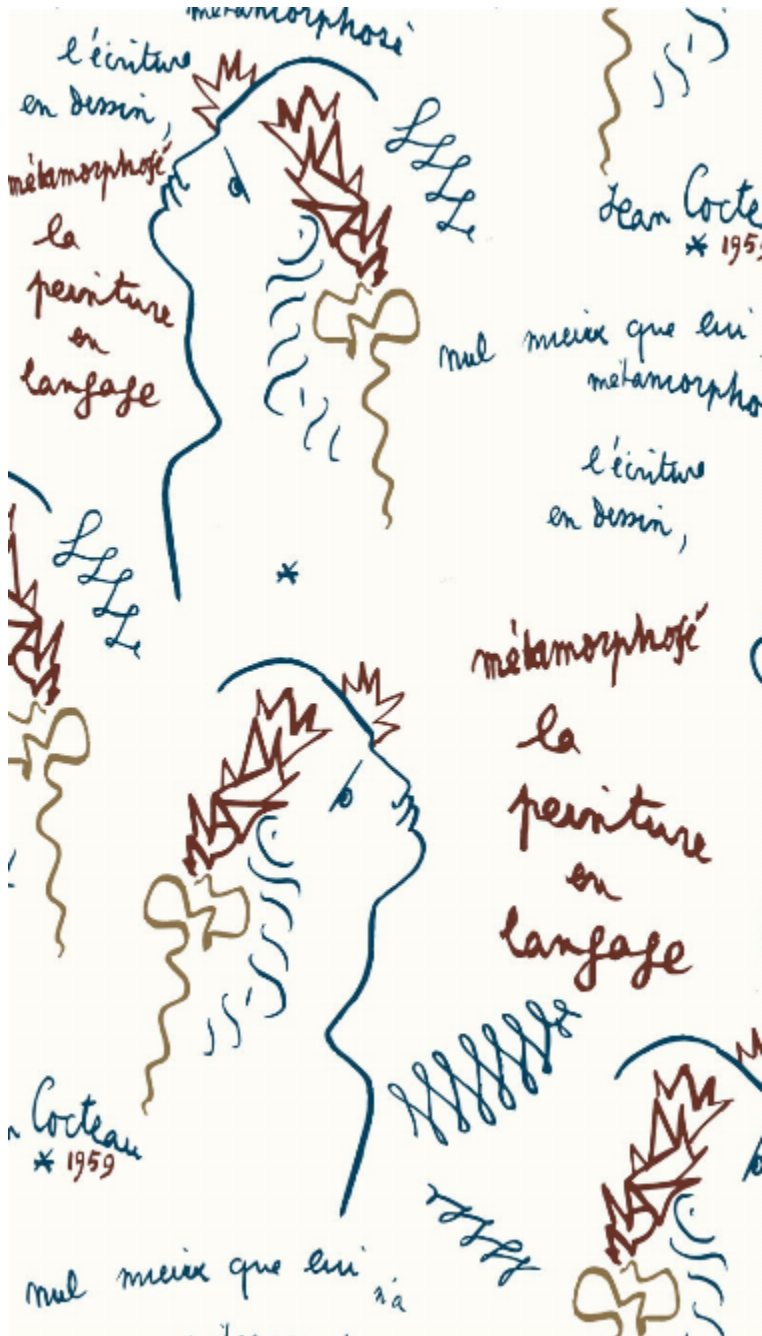 métamorphosé
l'écriture
en dessin,
métamorphosé
la
peinture
en
langage
Jean Cocte
* 1959
nul mieux que lui
métamorphos
l'écriture
en dessin,
métamorphosé
la
peinture
en
langage
n Cocteau
* 1959
nul mieux que lui n'a